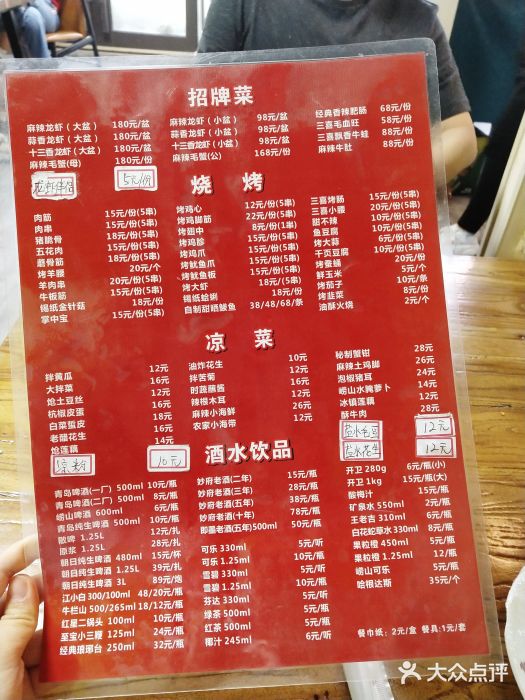 招牌菜
麻辣龙虾(大盆) 180元/盆
蒜香龙虾(大盆) 180元/盆
十三香龙虾(大盆) 180元/盆
麻辣毛蟹(母) 180元/份
麻辣龙虾(小盆) 98元/盆
蒜香龙虾(小盆) 98元/盆
十三香龙虾(小盆) 98元/盆
麻辣毛蟹(公) 168元/份
经典香辣肥肠 68元/份
三喜毛血旺 58元/份
三喜飘香牛蛙 88元/份
麻辣牛肚 88元/份
龙虾伴侣 5元/份
烧 烤
肉筋 15元/份(5串)
肉串 15元/份(5串)
猪脆骨 18元/份(5串)
五花肉 15元/份(5串)
磨骨筋 18元/份(5串)
烤羊腰 20元/个
羊肉串 20元/份(5串)
牛板筋 15元/份(5串)
锡纸金针菇 18元/份
掌中宝 15元/份(5串)
烤鸡心 12元/份(5串)
烤鸡脚筋 22元/份(5串)
烤翅中 8元/份(1串)
烤鸡胗 15元/份(5串)
烤鸡爪 15元/份(5串)
烤鱿鱼爪 15元/份(5串)
烤鱿鱼板 15元/份(5串)
烤大虾 18元/(5串)
锡纸蛤蜊 18元/份
自制甜晒鲅鱼 38/48/68/条
三喜烤筋 15元/份(5串)
三喜小腰 20元/份(5串)
甜不辣 10元/份(5串)
鱼豆腐 10元/份(5串)
烤大蒜 6元/份(5串)
千页豆腐 10元/份(5串)
烤蚕蛹 20元/份(5串)
鲜玉米 5元/个
烤茄子 10元/条
烤韭菜 8元/份
油酥火烧 2元/个
凉 菜
拌黄瓜 12元
大拌菜 16元
炝土豆丝 12元
杭椒皮蛋 16元
白菜蜇皮 18元
老醋花生 16元
炝莲藕 14元
油炸花生 10元
拌苦菊 16元
时蔬蘸酱 16元
辣根木耳 16元
麻辣小海鲜 26元
农家小海带 12元
秘制蟹钳 28元
麻辣土鸡脚 26元
泡椒猪耳 24元
崂山水腌萝卜 14元
冰镇莲藕 12元
酥牛肉 28元
凉粉 10元
盐水毛豆 12元
盐水花生 12元
酒水饮品
青岛啤酒(一厂) 500ml 10元/瓶
青岛啤酒(二厂) 500ml 8元/瓶
崂山啤酒 600ml 6元/瓶
青岛纯生啤酒 500ml 10元/瓶
散啤 1.25L 12元/扎
原浆 1.25L 28元/扎
朝日纯生啤酒 480ml 15元/杯
朝日纯生啤酒 1.25L 39元/扎
朝日纯生啤酒 3L 89元/炮
江小白 300/100ml 48/20元/瓶
牛栏山 500/265ml 18/12元/瓶
红星二锅头 100ml 10元/瓶
至宝小三鞭 125ml 24元/瓶
经典琅琊台 250ml 32元/瓶
妙府老酒(二年) 15元/瓶
妙府老酒(三年) 28元/瓶
妙府老酒(五年) 38元/瓶
妙府老酒(十年) 78元/瓶
即墨老酒(五年)500ml 50元/瓶
可乐 330ml 5元/听
可乐 1.25ml 10元/瓶
雪碧 330ml 5元/听
雪碧 1.25ml 10元/瓶
芬达 330ml 5元/听
绿茶 500ml 5元/瓶
红茶 500ml 5元/瓶
椰汁 245ml 6元/听
开卫 280g 6元/瓶(小)
开卫 1kg 15元/瓶(大)
酸梅汁 15元/瓶
矿泉水 550ml 2元/瓶
王老吉 310ml 6元/听
白花蛇草水 330ml 8元/瓶
果粒橙 450ml 5元/瓶
果粒橙 1.25ml 12元/瓶
崂山可乐 5元/瓶
哈根达斯 35元/个
餐巾纸:2元/盒 餐具:1元/套
大众点评